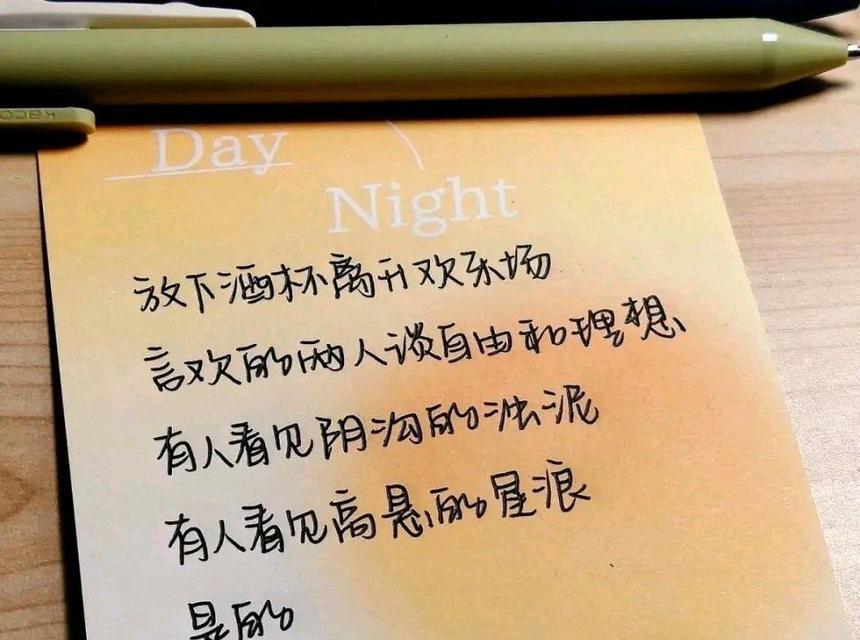 kaco
Day
Night
放下酒杯离开欢乐场
言欢的两人谈自由和理想
有人看见阴沟的浊泥
有人看见高悬的星浪
是的